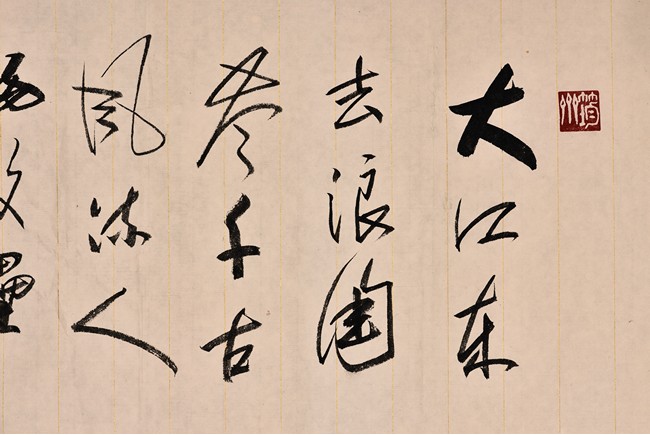 大江东
去浪淘
尽千古
风流人
物故壘